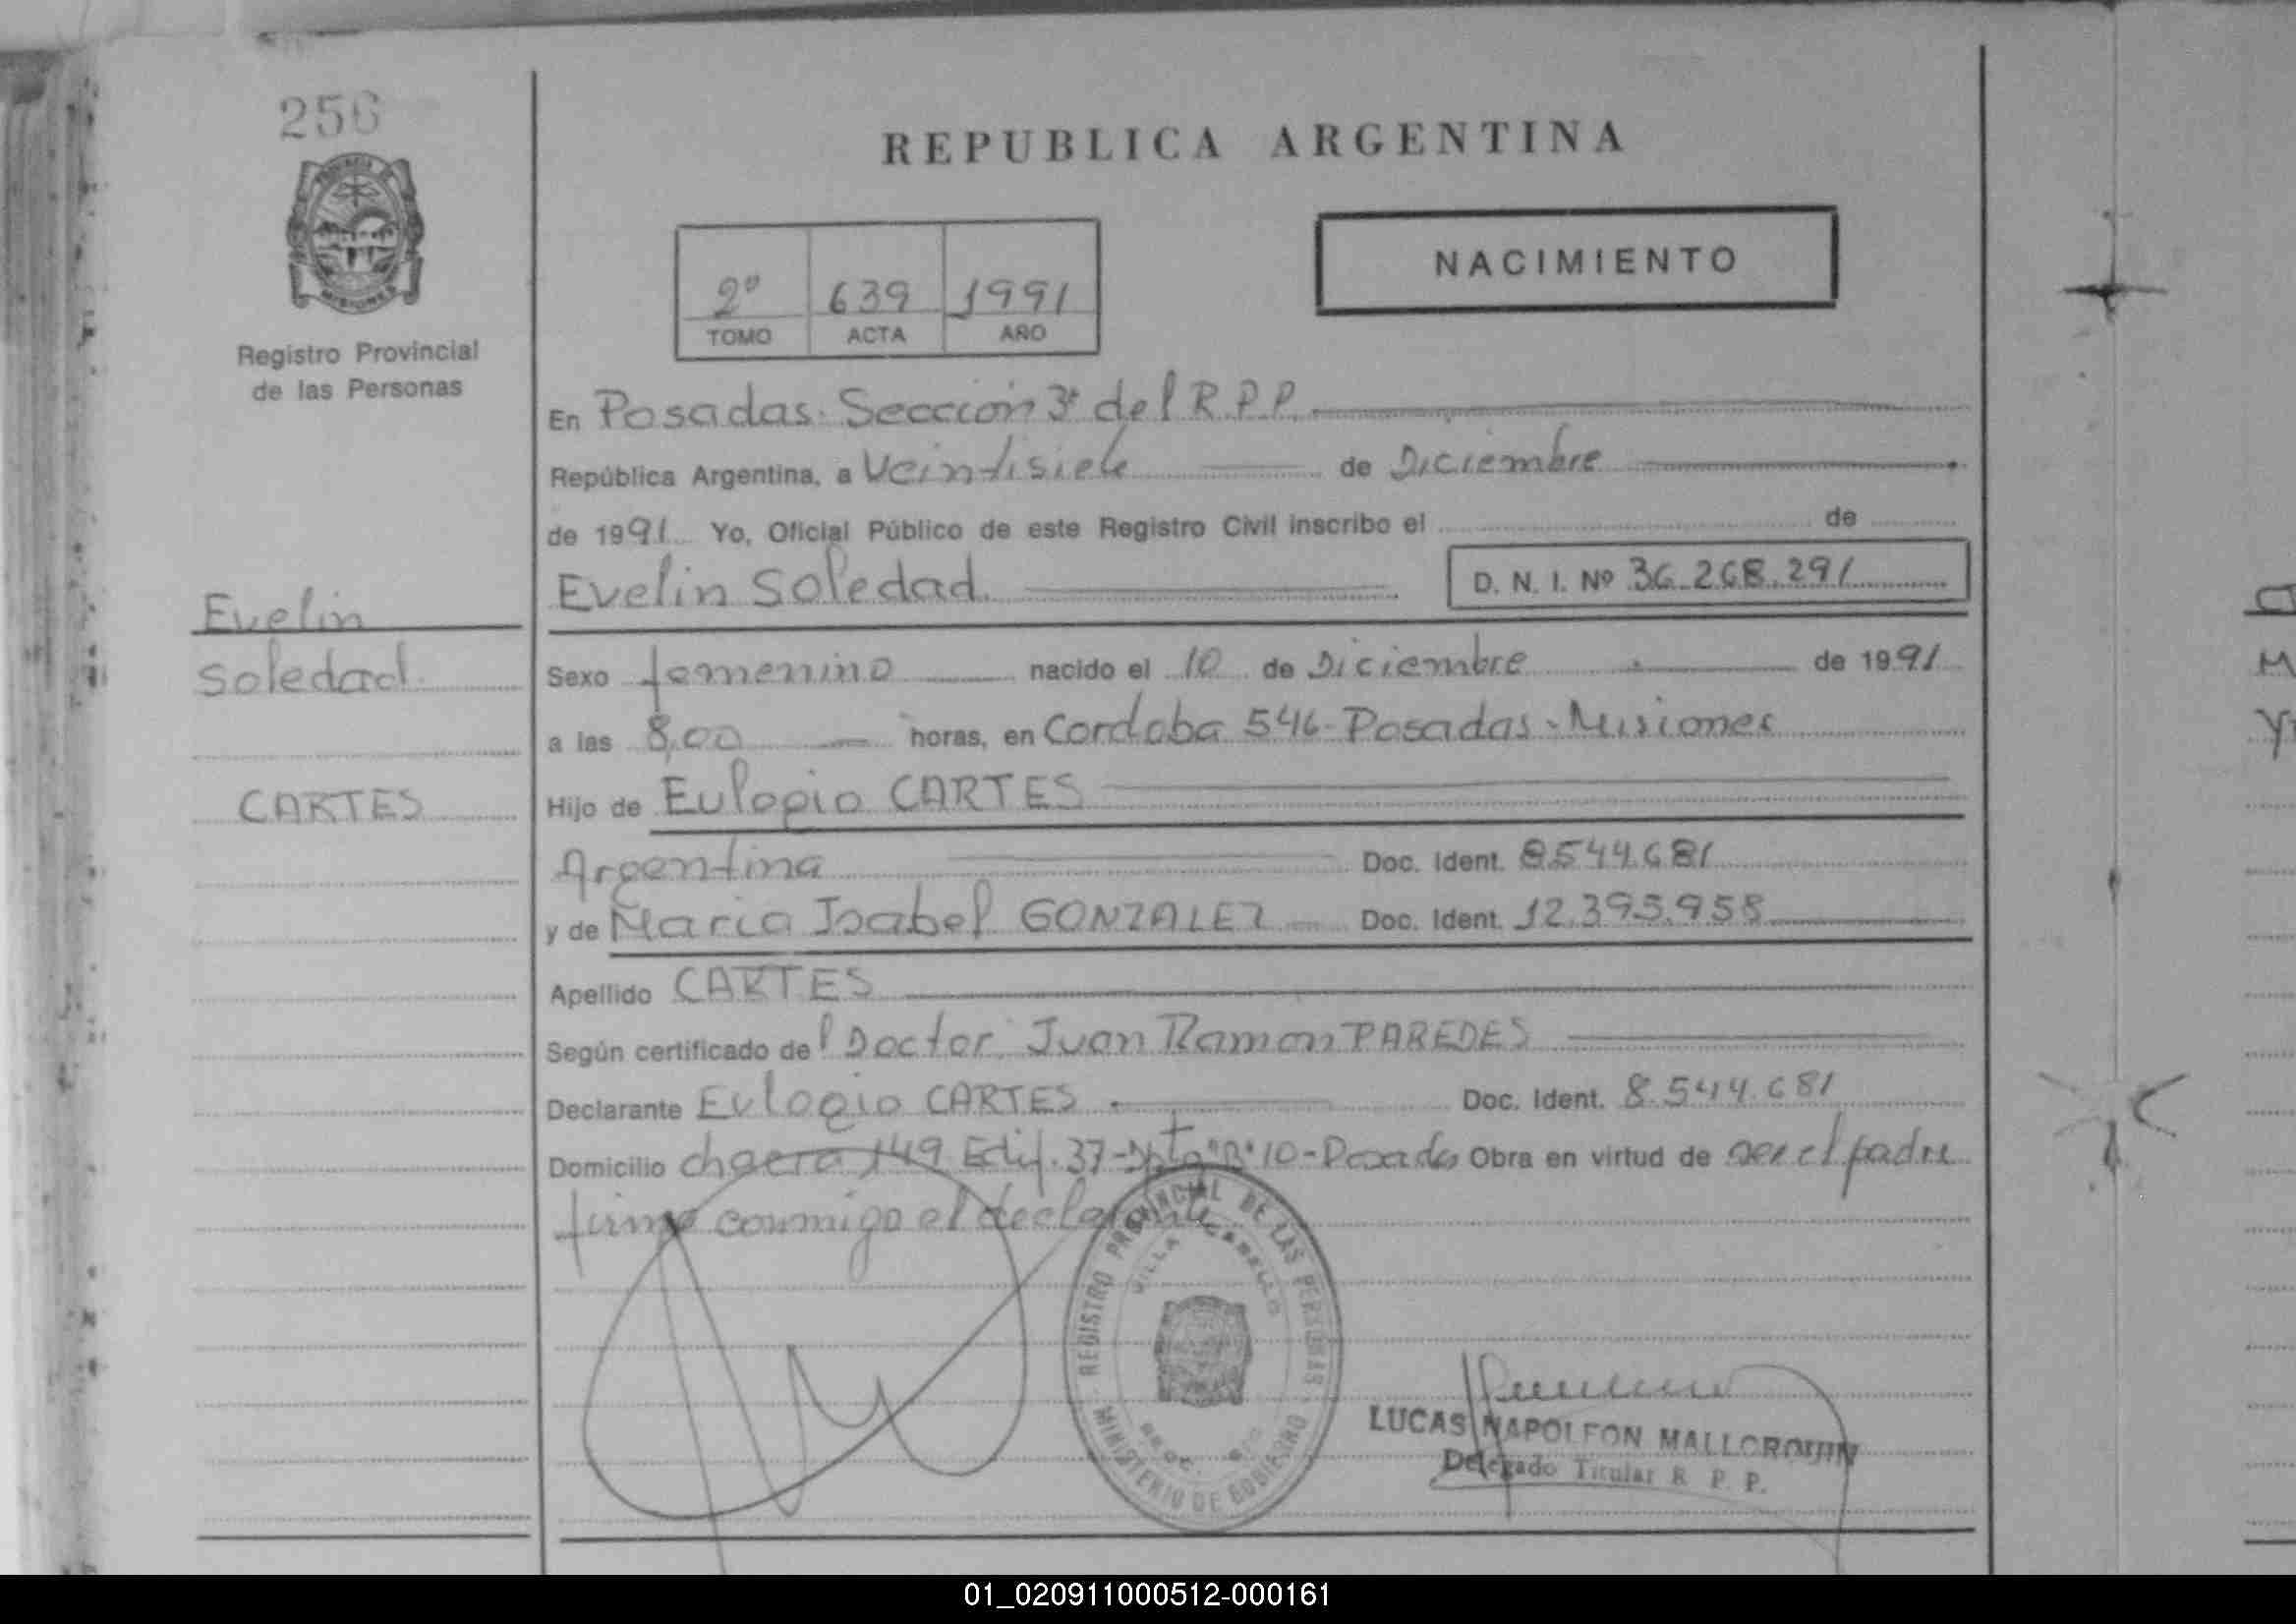 256
PROVINCIA DE
MISIONES
Registro Provincial
de las Personas
Evelin
Soledad.
CARTES
REPUBLICA ARGENTINA
2º 639 1991
TOMO ACTA AÑO
NACIMIENTO
En Posadas. Sección 3ª del R.P.P.
República Argentina, a Veintisiete de Diciembre
de 1991. Yo, Oficial Público de este Registro Civil inscribo el de
Evelin Soledad. D. N. I. Nº 36.268.291
Sexo femenino nacido el 10 de Diciembre de 1991
a las 8,00 horas, en Cordoba 546-Posadas-Misiones
Hijo de Eulogio CARTES
Argentina Doc. Ident. 8544.681
y de Maria Isabel GONZALEZ Doc. Ident. 12.395.958
Apellido CARTES
Según certificado del Doctor Juan Ramon PAREDES
Declarante Eulogio CARTES Doc. Ident. 8.544.681
Domicilio chacra 149 Edif. 37-Dpto "B" 10-Posadas Obra en virtud de ser el padre
firma conmigo el declarante
REGISTRO PROVINCIAL DE LAS PERSONAS
VILLA CABELLO
MINISTERIO DE GOBIERNO
LUCAS NAPOLEON MALLORQUIN
Delegado Titular R. P. P.
01_020911000512-000161